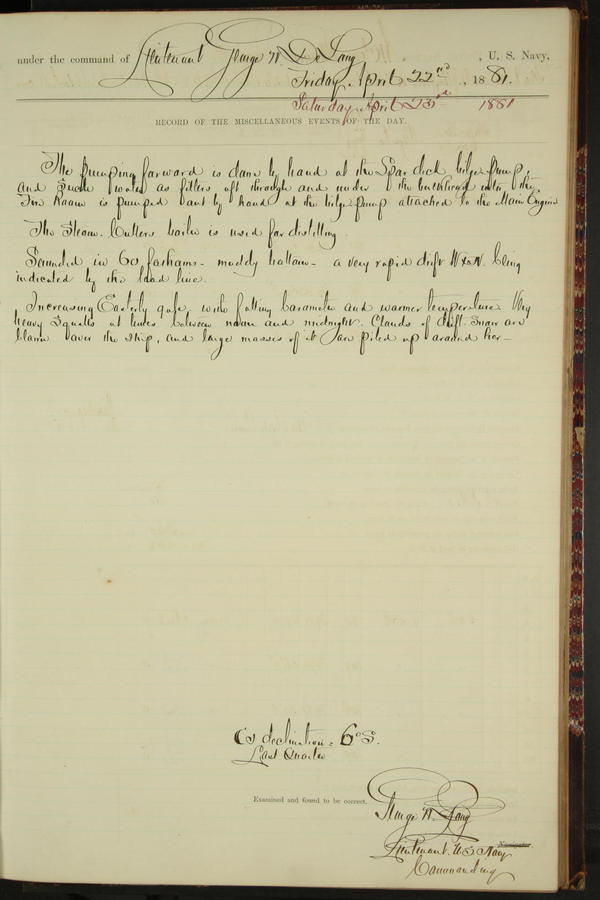 under the command of Lieutenant George W. De Long, U. S. Navy,
Friday, April 22nd, 1881.
Saturday, April 23rd 1881
RECORD OF THE MISCELLANEOUS EVENTS OF THE DAY.
The pumping forward is done by hand at the Spar deck bilge pump,
and such water as filters aft through and under the bulkhead into the
Fire Room is pumped out by hand at the bilge pump attached to the Main Engine
The Steam-Cutters boiler is used for distilling.
Sounded in 60 fathoms - muddy bottom - a very rapid drift being
indicated by the lead line.
Increasing Easterly gale, with falling barometer and warmer temperature. Very
heavy squalls at times between noon and midnight. Clouds of drift-snow are
blown over the ship, and large masses of it are piled up around her -
☾'s declination = 6° S.
Last Quarter
Examined and found to be correct.
George W. De Long
Lieutenant U.S. Navy Navigator.
Commanding